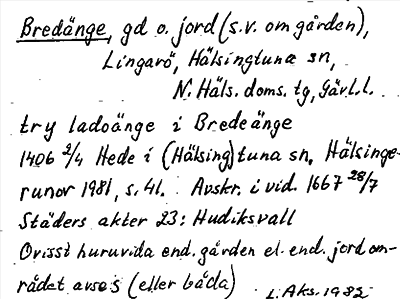 Bredänge, gd o. jord (s.v. om gården),
Lingarö, Hälsingtuna sn,
N. Häls. doms. tg, Gävl.l.
try ladoänge i Bredeänge
1406 2/4 Hede i (Hälsing)tuna sn, Hälsinge-
runor 1981, s. 41. Avskr. i vid. 1667 28/7
Städers akter 23: Hudiksvall
Ovisst huruvida end. gården el. end. jordom-
rådet avses (eller båda)
L. Aks. 1982